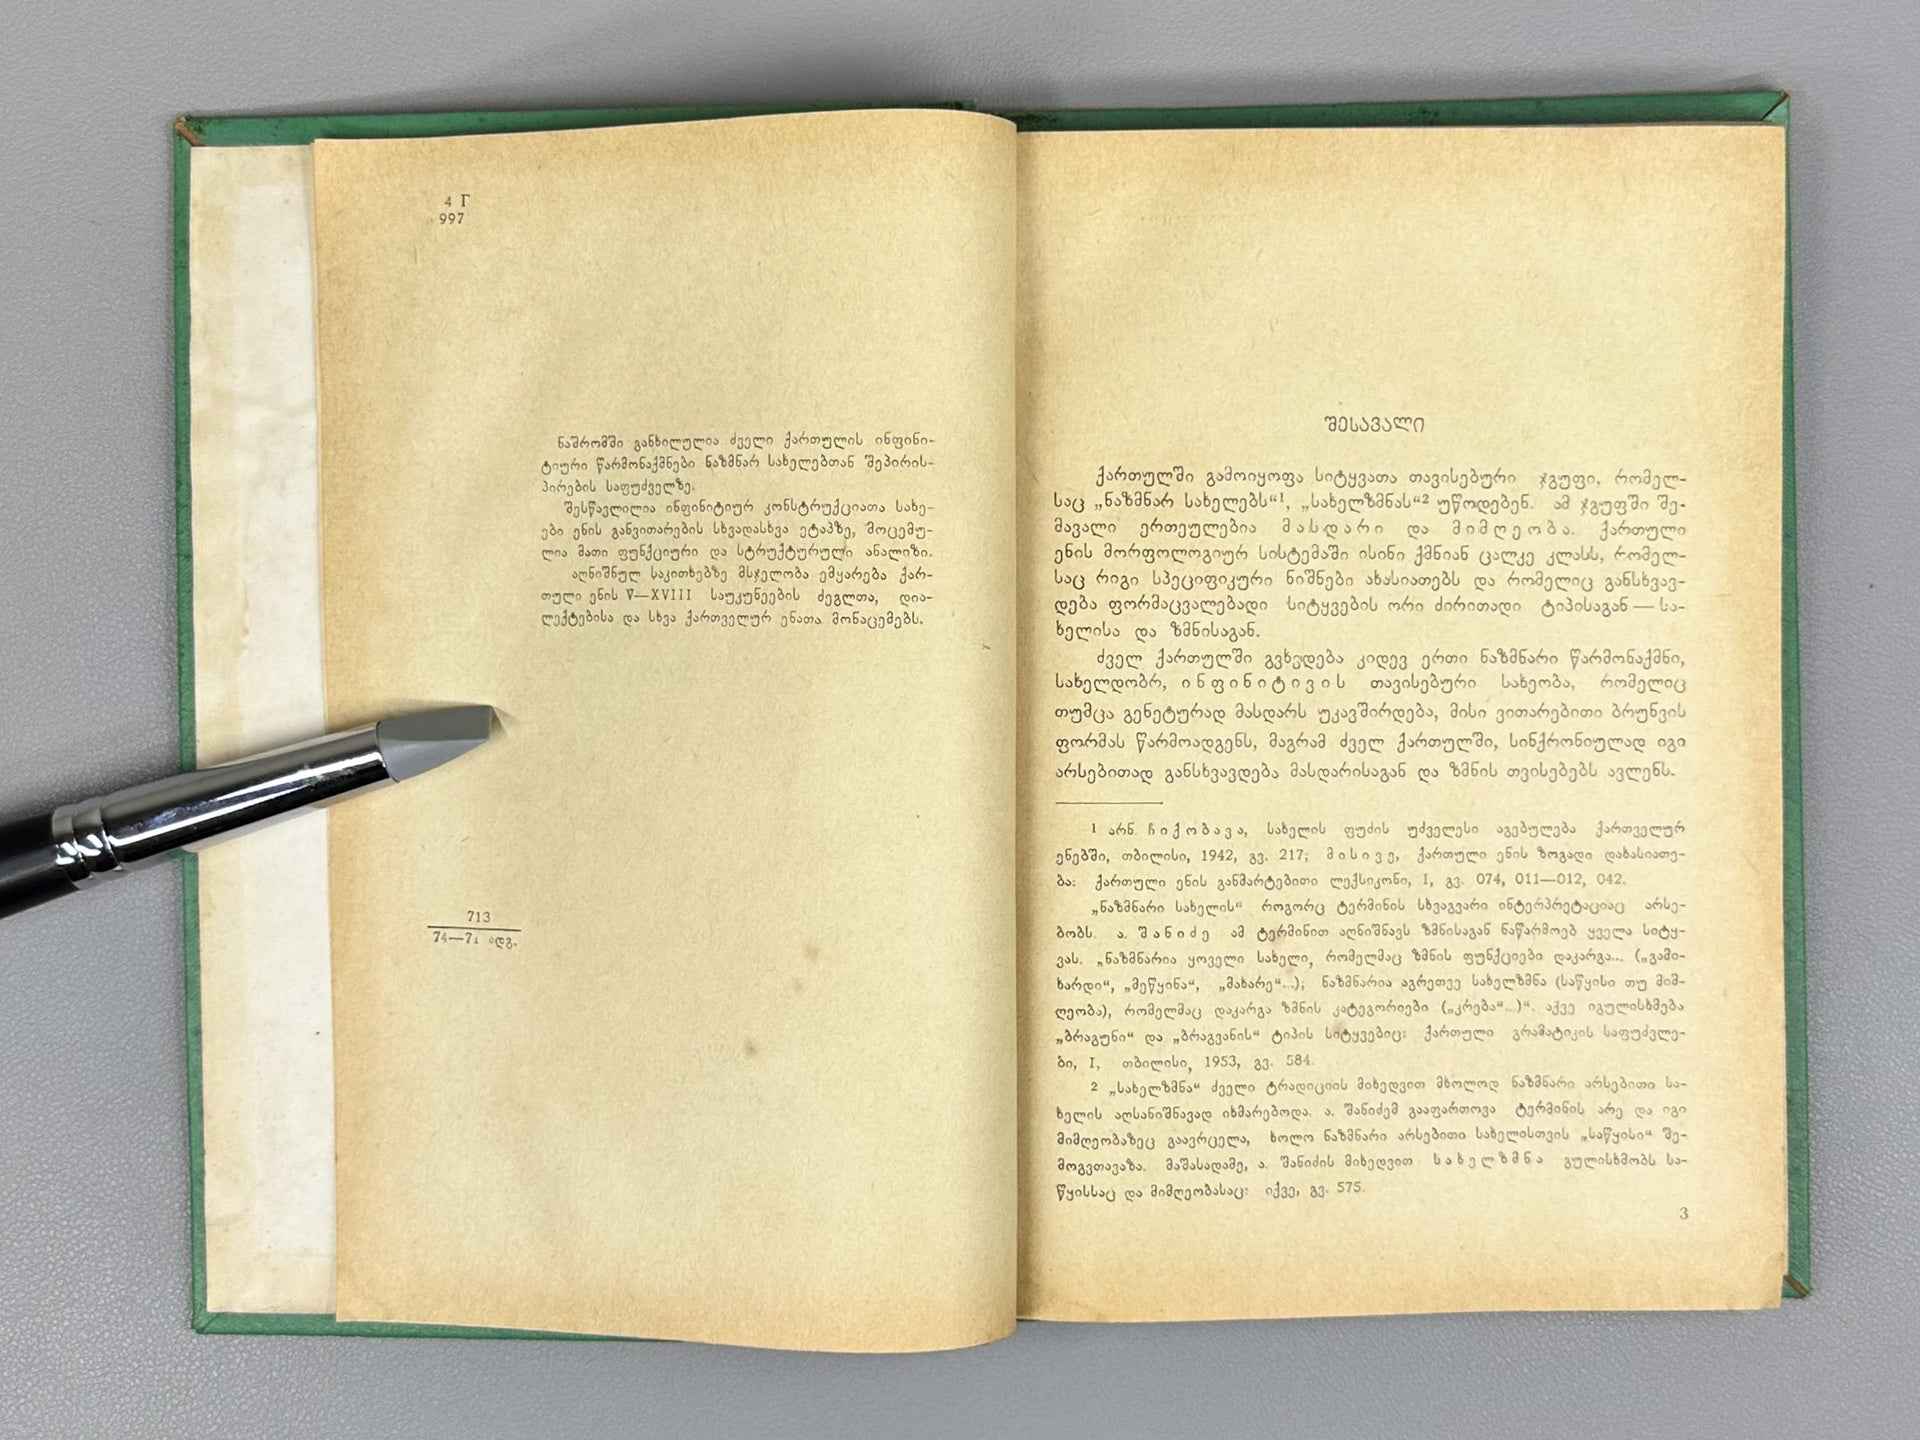 4 Г
997
ნაშრომში განხილულია ძველი ქართულის ინფინი-
ტიური წარმონაქმნები ნაზმნარ სახელებთან შეპირის-
პირების საფუძველზე.
შესწავლილია ინფინიტიურ კონსტრუქციათა სახე-
ები ენის განვითარების სხვადასხვა ეტაპზე, მოცემუ-
ლია მათი ფუნქციური და სტრუქტურული ანალიზი.
აღნიშნულ საკითხებზე მსჯელობა ემყარება ქარ-
თული ენის V—XVIII საუკუნეების ძეგლთა, დია-
ლექტებისა და სხვა ქართველურ ენათა მონაცემებს.
713
74—71 ადგ.
შესავალი
ქართულში გამოიყოფა სიტყვათა თავისებური ჯგუფი, რომელ-
საც „ნაზმნარ სახელებს“¹, „სახელზმნას“² უწოდებენ. ამ ჯგუფში შე-
მავალი ერთეულებია მასდარი და მიმღეობა. ქართული
ენის მორფოლოგიურ სისტემაში ისინი ქმნიან ცალკე კლასს, რომელ-
საც რიგი სპეციფიკური ნიშნები ახასიათებს და რომელიც განსხვავ-
დება ფორმაცვალებადი სიტყვების ორი ძირითადი ტიპისაგან — სა-
ხელისა და ზმნისაგან.
ძველ ქართულში გვხვდება კიდევ ერთი ნაზმნარი წარმონაქმნი,
სახელდობრ, ინფინიტივის თავისებური სახეობა, რომელიც
თუმცა გენეტურად მასდარს უკავშირდება, მისი ვითარებითი ბრუნვის
ფორმას წარმოადგენს, მაგრამ ძველ ქართულში, სინქრონიულად იგი
არსებითად განსხვავდება მასდარისაგან და ზმნის თვისებებს ავლენს.
¹ არნ. ჩიქობავა, სახელის ფუძის უძველესი აგებულება ქართველურ
ენებში, თბილისი, 1942, გვ. 217; მისივე, ქართული ენის ზოგადი დახასიათე-
ბა: ქართული ენის განმარტებითი ლექსიკონი, I, გვ. 074, 011—012, 042.
„ნაზმნარი სახელის“ როგორც ტერმინის სხვაგვარი ინტერპრეტაციაც არსე-
ბობს. ა. შანიძე ამ ტერმინით აღნიშნავს ზმნისაგან ნაწარმოებ ყველა სიტყ-
ვას. „ნაზმნარია ყოველი სახელი, რომელმაც ზმნის ფუნქციები დაკარგა... („გამი-
ხარდი“, „მეწყინა“, „მახარე“...); ნაზმნარია აგრეთვე სახელზმნა (საწყისი თუ მიმ-
ღეობა), რომელმაც დაკარგა ზმნის კატეგორიები („კრება“...)“. აქვე იგულისხმება
„ბრაგუნი“ და „ბრაგვანის“ ტიპის სიტყვებიც: ქართული გრამატიკის საფუძვლე-
ბი, I, თბილისი, 1953, გვ. 584.
² „სახელზმნა“ ძველი ტრადიციის მიხედვით მხოლოდ ნაზმნარი არსებითი სა-
ხელის აღსანიშნავად იხმარებოდა. ა. შანიძემ გააფართოვა ტერმინის არე და იგი
მიმღეობაზეც გაავრცელა, ხოლო ნაზმნარი არსებითი სახელისთვის „საწყისი“ შე-
მოგვთავაზა. მაშასადამე, ა. შანიძის მიხედვით სახელზმნა გულისხმობს სა-
წყისსაც და მიმღეობასაც: იქვე, გვ. 575.
3